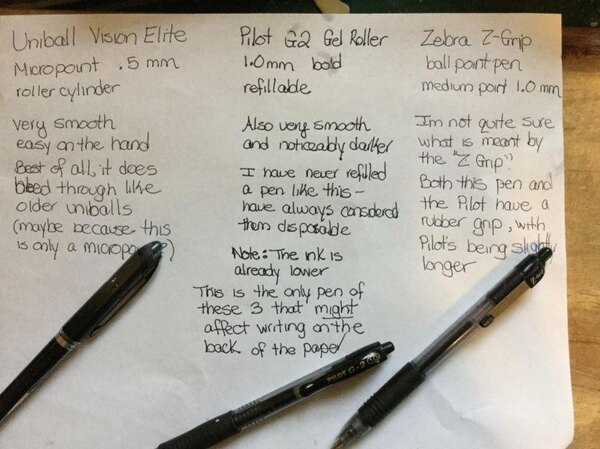 Uniball Vision Elite
Micropoint .5 mm
roller cylinder
very smooth
easy on the hand
Best of all, it does
bleed through like
older uniballs
(maybe because this
is only a micropo
Pilot G2 Gel Roller
1.0 mm bold
refillable
Also very smooth
and noticeably darker
I have never refilled
a pen like this –
have always considered
them disposable
Note: The ink is
already lower
This is the only pen of
these 3 that might
affect writing on the
back of the paper
Zebra Z-Grip
ball point pen
medium point 1.0 mm
I'm not quite sure
what is meant by
the "Z Grip".
Both this pen and
the Pilot have a
rubber grip, with
Pilot's being slightly
longer
PILOT G-2